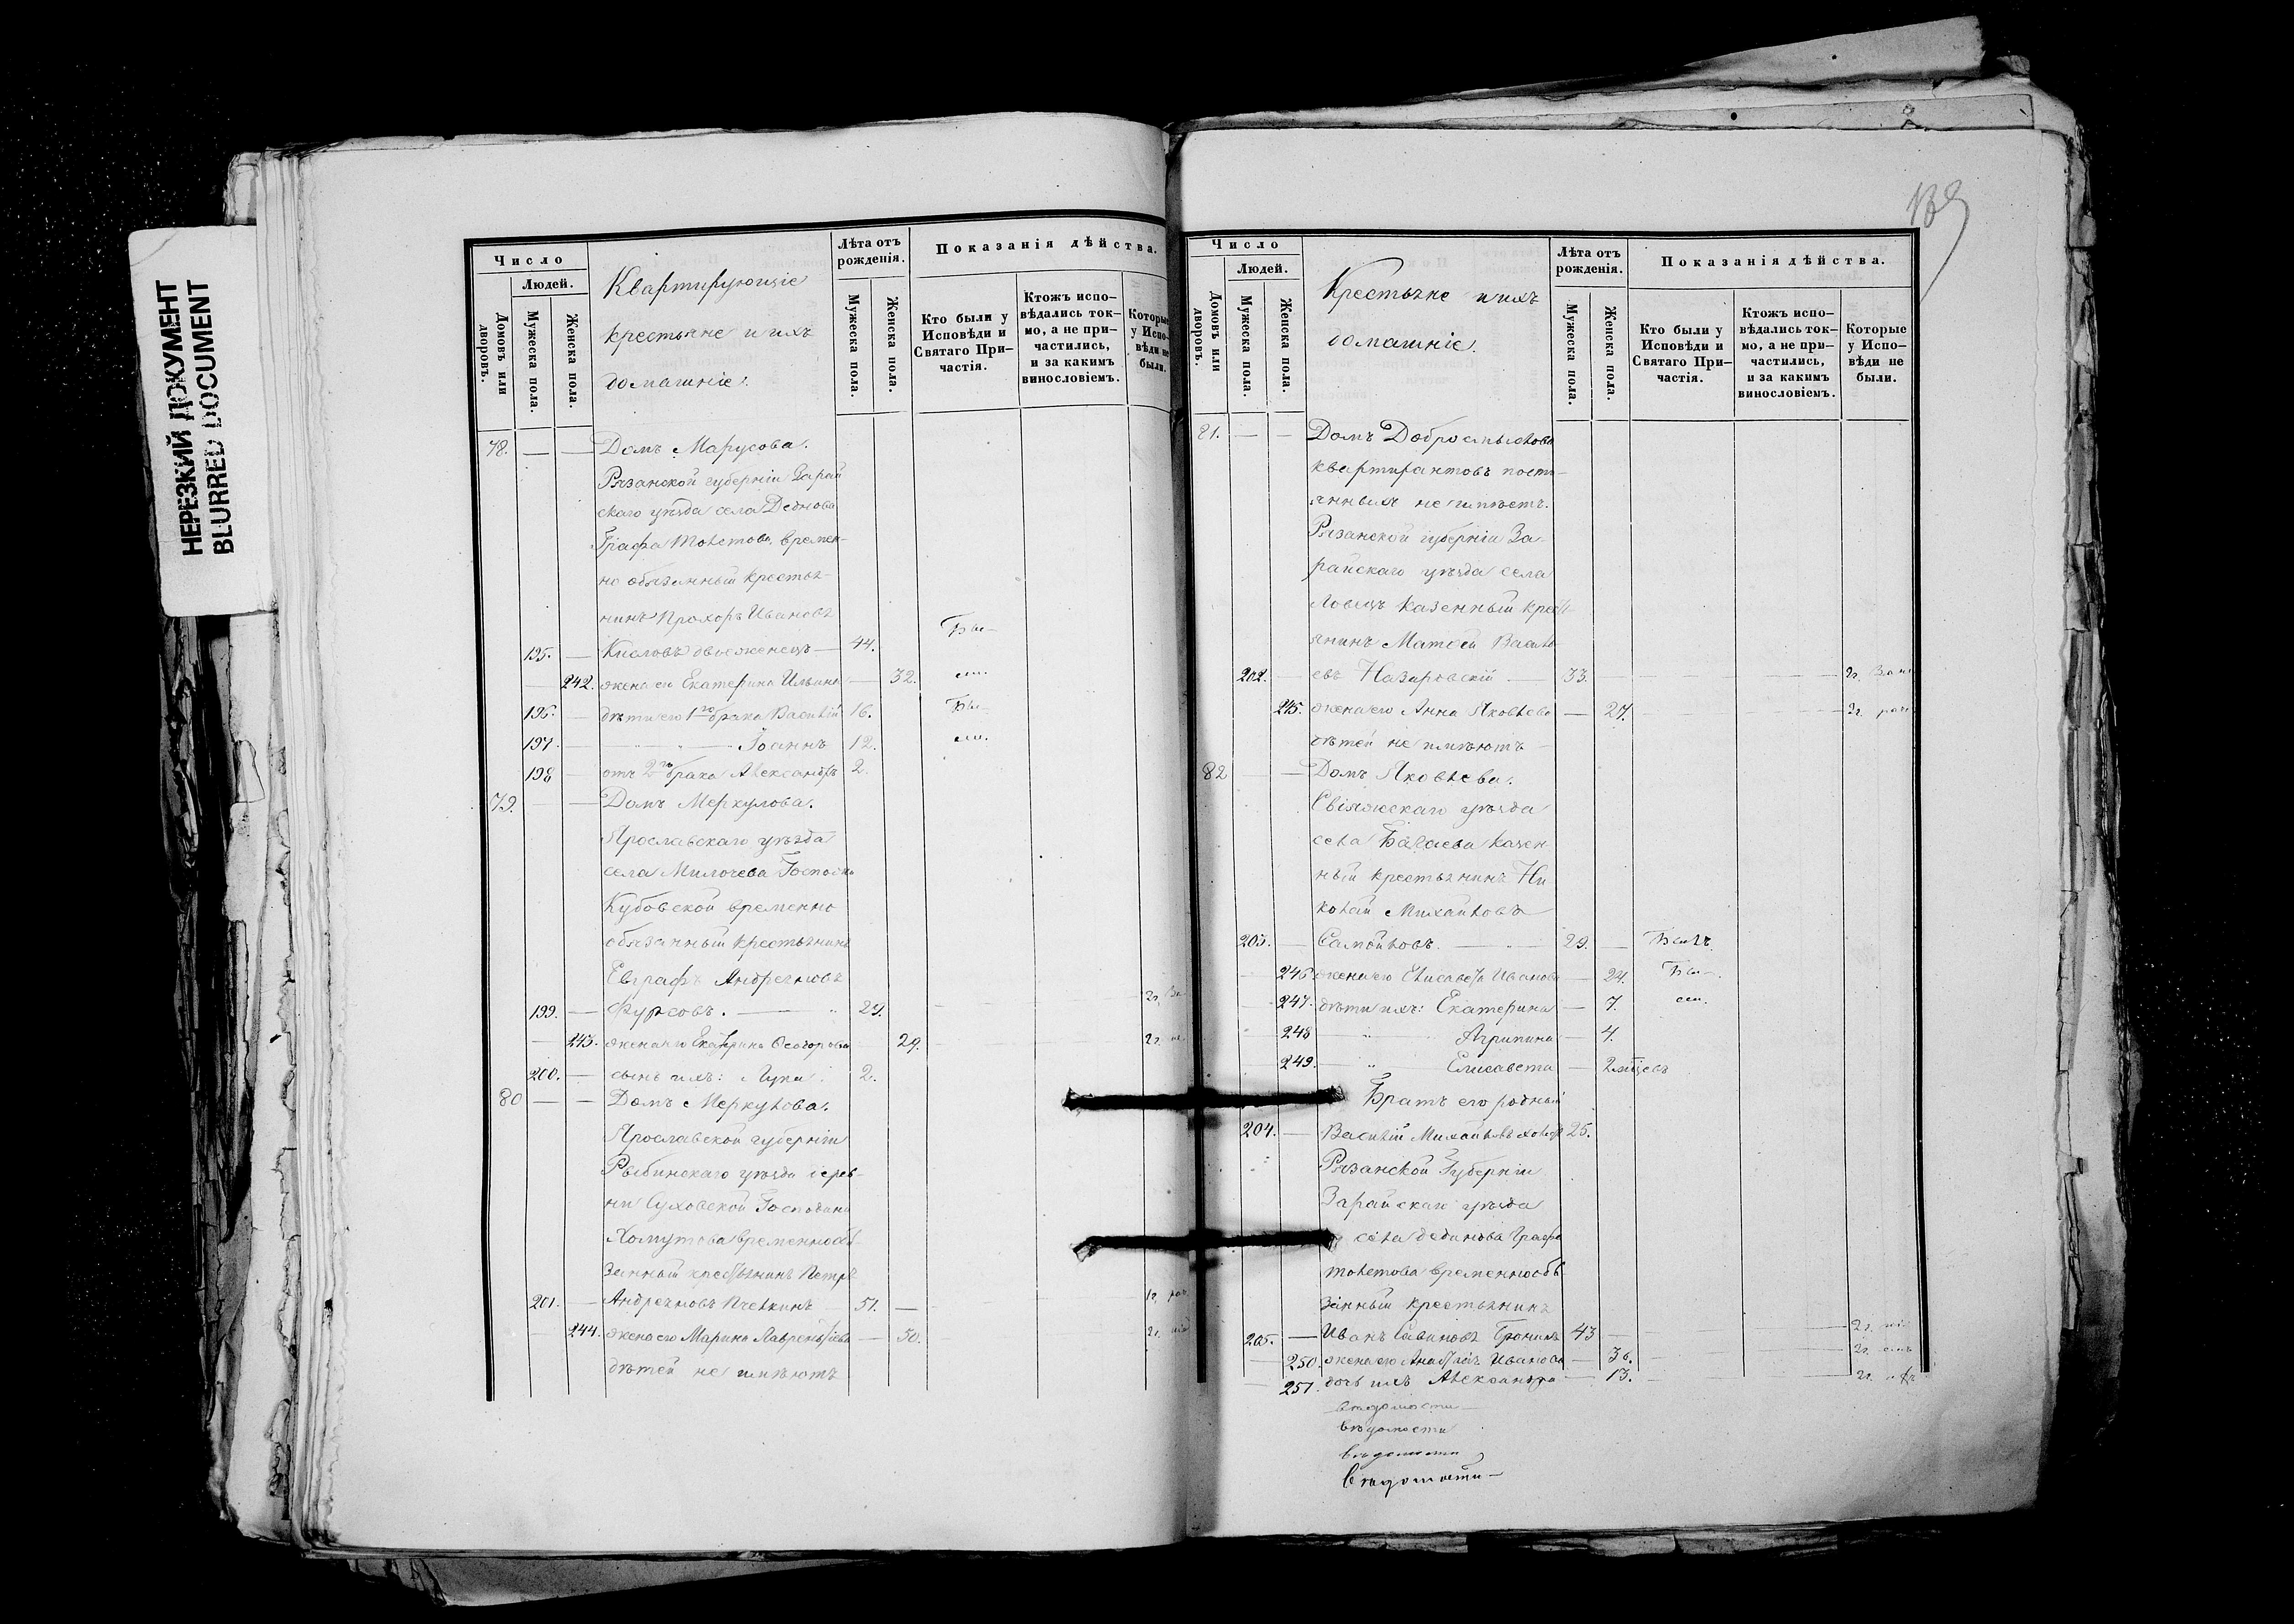 НЕРЕЗКИЙ ДОКУМЕНТ
BLURRED DOCUMENT
Число
Людей.
Домовъ или дворовъ.
Мужеска пола.
Женска пола.
Квартирующіе
крестьяне и ихъ
домашніе.
Лѣта отъ рожденія.
Мужеска пола.
Женска пола.
Показанія дѣйства.
Кто были у Исповѣди и Святаго Причастія.
Ктожъ исповѣдались токмо, а не причастились, и за какимъ винословіемъ.
Которые у Исповѣди не были.
78. — — Домъ Марусова.
Рязанской губерніи Зарай
скаго уѣзда села Деднова
Графа Толстова, времен-
но обязанный крестья-
нинъ Прохоръ Ивановъ
195. — Кисловъ двоеженецъ — 44. Бы—
— 242. жена его Екатерина Ильина — 32.
196. — дѣти его 1го брака Василій 16. Бы—
197. — — " — Іоаннъ 12.
198 — отъ 2го брака Александръ 2.
79. — — Домъ Меркулова.
Ярославскаго уѣзда
села Милочева Господина
Кубовской временно
обязанный крестьянинъ
Евграфъ Андреяновъ
199. — Фурсовъ. — 29. 2г.
— 243. жена его Екатерина Ѳеодорова 29. 2г.
200. — сынъ ихъ: Лука. 2.
80 — — Домъ Меркулова.
Ярославской губерніи
Рыбинскаго уѣзда дерев-
ни Суховской Господина
Хомутова временнообя-
занный крестьянинъ Петръ
201. — Андреяновъ Пчелкинъ 51. — 1г.
— 244. жена его Марина Лаврентьева — 50. 2г.
дѣтей не имѣютъ
Число
Людей.
Домовъ или дворовъ.
Мужеска пола.
Женска пола.
Крестьяне и ихъ
домашніе.
Лѣта отъ рожденія.
Мужеска пола.
Женска пола.
Показанія дѣйства.
Кто были у Исповѣди и Святаго Причастія.
Ктожъ исповѣдались токмо, а не причастились, и за какимъ винословіемъ.
Которые у Исповѣди не были.
81. — — Домъ Добросмыслова
квартирантовъ посто-
янныхъ не имѣетъ.
Рязанской губерніи За-
райскаго уѣзда села
Ловецъ казенный крест-
янинъ Матѳей Василь
202. — евъ Назаровскій — 33. 2г.
245. жена его Анна Яковлева — 27. 2г.
дѣтей не имѣютъ
82 — Домъ Яковлева.
Свіяжскаго уѣзда
села Багаева казен
ный крестьянинъ Ни
колай Михайловъ
203. — Самойловъ. — 29. — Былъ.
246 жена его Елисавета Иванова — 24. Бы—.
— 247. дѣти ихъ: Екатерина — 7.
248 " Агрипина — 4.
249. — " Елисавета — 2 мѣсцевъ
Братъ его родный
204. — Василій Михайловъ холост 25.
Рязанской Губерніи
Зарайскаго уѣзда
села Дединова Графа
Толстова временнообя-
занный крестьянинъ
205. — Иванъ Савиновъ Громилъ 43 — 2г.
— 250. жена его Анастасія Иванова — 36. 2г.
251. дочь ихъ Александра — 13. 2г.
вѣдомости
вѣдомости
вѣдомости
вѣдомости